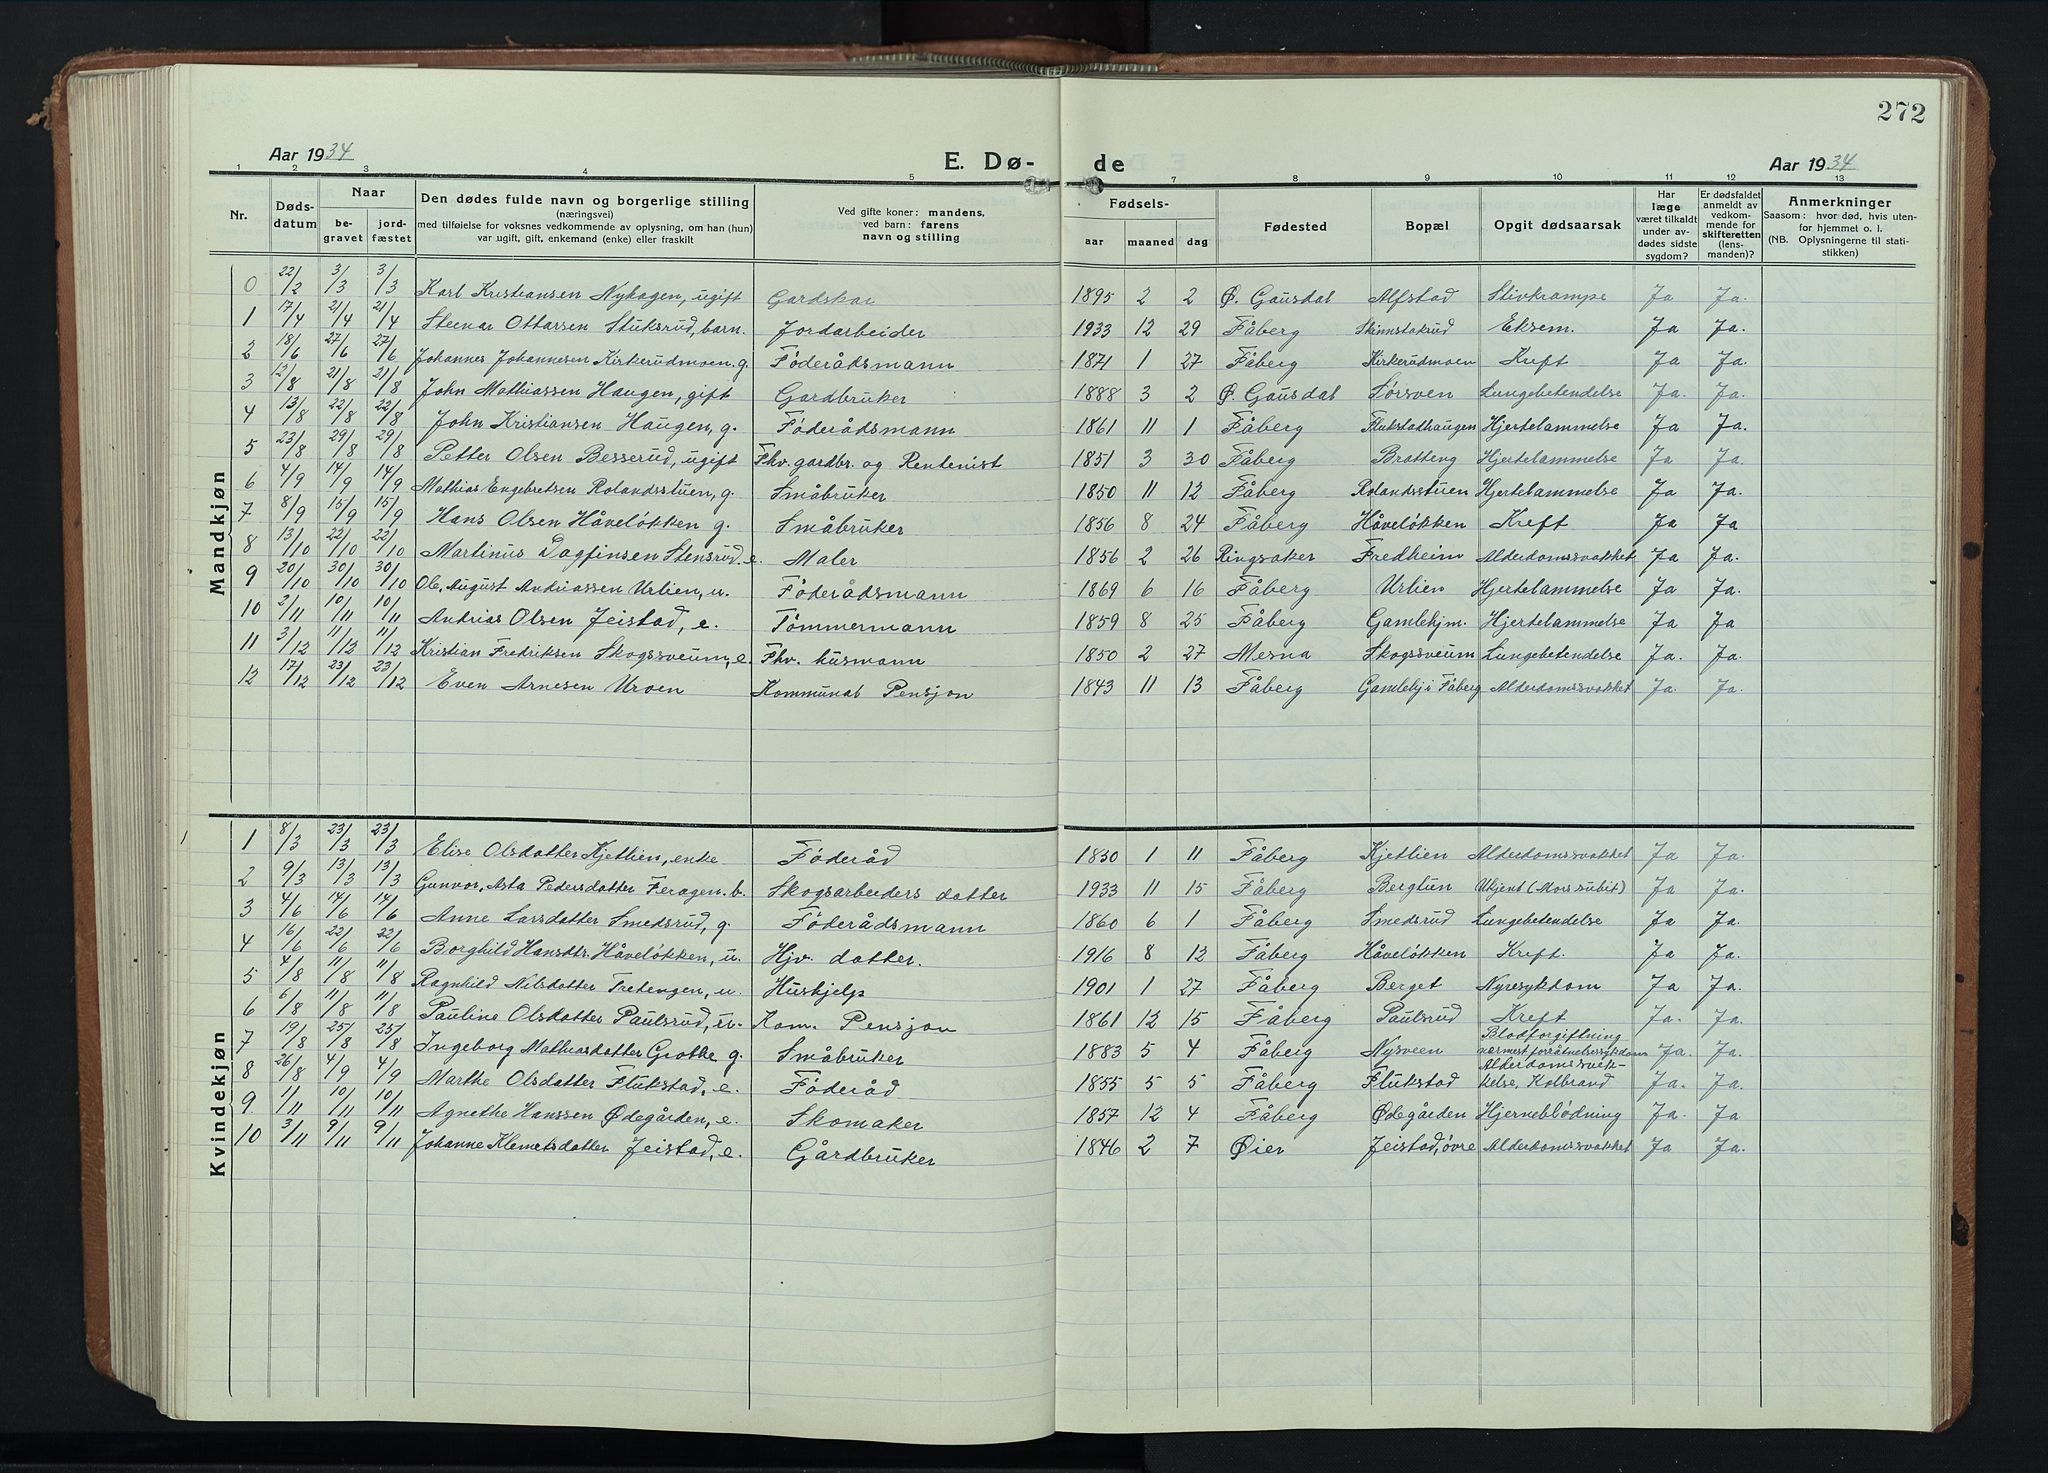 272
Aar 1934
E. Dø-
de
Aar 1934
1 2 3 4 5 7 8 9 10 11 12 13
Nr.
Døds-
datum
Naar
be-
gravet
jord-
fæstet
Den dødes fulde navn og borgerlige stilling
(næringsvei)
med tilføielse for voksnes vedkommende av oplysning, om han (hun)
var ugift, gift, enkemand (enke) eller fraskilt
Ved gifte koner: mandens,
ved barn: farens
navn og stilling
Fødsels-
aar maaned dag
Fødested
Bopæl
Opgit dødsaarsak
Har
læge
været tilkaldt
under av-
dødes sidste
sygdom?
Er dødsfaldet
anmeldt av
vedkom-
mende for
skifteretten
(lens-
manden)?
Anmerkninger
Saasom: hvor død, hvis uten-
for hjemmet o. l.
(NB. Oplysningerne til stati-
stikken)
Mandkjøn
0 22/2 3/3 3/3 Karl Kristiansen Nyhagen, ugift Gardskar 1895 2 2 Ø. Gausdal Alfstad Stivkrampe Ja Ja.
1 17/4 21/4 21/4 Steinar Ottarsen Stuksrud, barn. Jordarbeider 1933 12 29 Fåberg Skinnstakrud Eksem. Ja Ja.
2 18/6 27/6 27/6 Johannes Johannesen Kirkerudmoen, g. Føderådsmann 1871 1 27 Fåberg Kirkerudmoen Kreft Ja Ja.
3 12/8 21/8 21/8 John Mathiassen Haugen, gift Gardbruker 1888 3 2 Ø. Gausdal Sørsven Lungebetendelse Ja. Ja.
4 13/8 22/8 22/8 John Kristiansen Haugen, g. Føderådsmann 1861 11 1 Fåberg Flukstadhaugen Hjertelammelse Ja Ja.
5 23/8 29/8 29/8 Petter Olsen Besserud, ugift Fhv. gardbr. og Rentenist 1851 3 30 Fåberg Bratteng Hjertelammelse Ja Ja.
6 4/9 14/9 14/9 Mathias Engebretsen Rolandsstuen, g. Småbruker 1850 11 12 Fåberg Rolandsstuen Hjertelammelse Ja Ja.
7 8/9 15/9 15/9 Hans Olsen Håveløkken g. Småbruker 1856 8 24 Fåberg Håveløkken Kreft Ja Ja
8 13/10 22/10 22/10 Martinus Dagfinsen Stensrud. e. Maler 1856 2 26 Ringsaker Fredheim Alderdomssvakhet Ja Ja.
9 20/10 30/10 30/10 Ole August Andriassen Urlien, u. Føderådsmann 1869 6 16 Fåberg Urlien Hjertelammelse Ja Ja.
10 2/11 10/11 10/11 Andrias Olsen Jeistad, e. Tømmermann 1859 8 25 Fåberg Gamlehjm. Hjertelammelse Ja Ja
11 3/12 11/12 11/12 Kristian Fredriksen Skogssveum, e. Fhv. husmann 1850 2 27 Mesna Skogssveum Lungebetendelse Ja. Ja.
12 17/12 23/12 23/12 Even Arnesen Uroen Kommunal Pensjon 1843 11 13 Fåberg Gamlehj i Fåberg Alderdomssvakhet Ja. Ja.
Kvindekjøn
1 8/3 23/3 23/3 Elise Olsdatter Kjetlien, enke Føderåd 1830 1 11 Fåberg Kjetlien Alderdomssvakhet Ja Ja.
2 9/3 13/3 13/3 Gunvor, Asta Pedersdatter Feragen. b. Skogsarbeiders datter 1933 11 15 Fåberg Bergtun Ukjent (Mors subit) Ja Ja.
3 4/6 14/6 14/6 Anne Larsdatter Smedsrud, g. Føderådsmann 1860 6 1 Fåberg Smedsrud Lungebetendelse Ja Ja
4 16/6 22/6 22/6 Borghild Hansdtr. Håveløkken, u. Hjv. datter. 1916 8 12 Fåberg Håveløkken Kreft. Ja Ja.
5 4/8 11/8 11/8 Ragnhild Nilsdatter Tretengen, u. Huskjelp 1901 1 27 Fåberg Berget Nyresykdom Ja Ja.
6 6/8 11/8 11/8 Pauline Olsdatter Paulsrud, u. Kom. Pensjon 1861 12 15 Fåberg Paulsrud Kreft Ja. Ja.
7 19/8 25/8 25/8 Ingeborg Mathiasdatter Grothe g. Småbruker 1883 5 4 Fåberg Nysveen Blodforgiftning nærmest forråtnelsessykdom Ja. Ja.
8 26/8 4/9 4/9 Marthe Olsdatter Flukstad, e. Føderåd 1855 5 5 Fåberg Flukstad Alderdomssvek- kelse, Kolbrand Ja. Ja.
9 1/11 10/11 10/11 Agnethe Hanssen Ødegården, e. Skomaker 1857 12 4 Fåberg Ødegården Hjerneblødning Ja. Ja.
10 3/11 9/11 9/11 Johanne Klemetsdatter Jeistad, e. Gårdbruker 1846 2 7 Øier Jeistad, øvre Alderdomssvakhet Ja Ja.